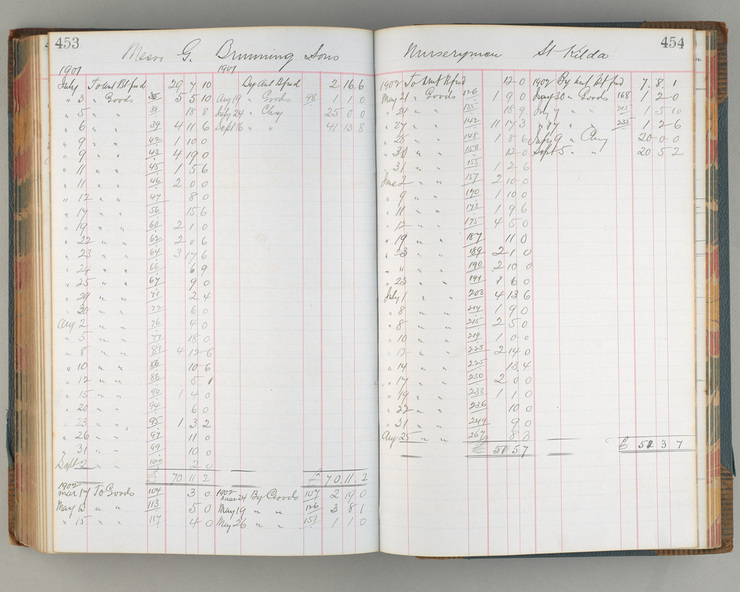 453
Messrs G. Brunning Sons
1901
1901
July To Amt Bt fwd 29 7 10 By Amt Bt fwd 2 16 6
" 3 " Goods 5 5 10 Aug 19 " Goods 98 1 1 0
" 5 " " 18 8 July 24 " Chq 25 0 0
" 6 " " 39 4 11 6 Sept 16 " " 41 13 8
" 9 " " 1 10 0
" 9 " " 4 19 0
" 11 " " 45 1 5 6
" 11 " " 46 2 0 0
" 12 " " 47 8 0
" 17 " " 56 15 6
" 19 " " 60 2 1 0
" 22 " " 62 2 0 6
" 23 " " 64 3 17 6
" 24 " " 66 6 9
" 25 " " 67 9 0
" 29 " " 71 2 4
" 30 " " 72 6 0
Aug 2 " " 76 4 0
" 5 " " 77 18 0
" 8 " " 4 12 6
" 10 " " 10 6
" 12 " " 5 1
" 15 " " 1 4 0
" 20 " " 94 6 0
" 23 " " 95 1 3 2
" 26 " " 97 11 0
" 31 " " 99 10 0
Sept 2 " " 2 0
£ 70 11 2 £ 70 11 2
1902 1902
Mar 17 To Goods 104 3 0 Mar 24 By Goods 107 2 19 0
May 13 " " 113 5 0 May 19 " " 126 3 8 1
" 15 " " 117 4 0 May 26 " " 151 1 1 0
454
Nurseryman St Kilda
1902 To Amt Bt fwd 12 0 1902 By Amt Bt fwd 7 8 1
May 21 " Goods 126 1 9 0 May 30 " Goods 168 1 2 0
" 21 " " 135 18 9 July 7 " " 215 1 5 10
" 27 " " 142 11 17 3 " " 1 2 6
" " " 148 1 8 6 " Chq 20 0 0
" 30 " " 12 0 Sept 5 " " 20 5 2
" 31 " " 155 1 2 6
June 2 " " 157 2 10 0
" 9 " " 170 1 10 0
" 11 " " 1 9 6
" 12 " " 175 4 5 0
" 19 " " 187 11 0
" 23 " " 189 2 1 0
" " " 190 2 10 0
" 23 " " 6 0
July 1 " " 203 4 13 6
" 8 " " 214 1 9 0
" 8 " " 215 2 5 0
" 10 " " 219 1 0 0
" 12 " " 223 2 14 0
" 14 " " 225 13 4
" 17 " " 230 2 0 0
" 19 " " 233 1 1 0
" 22 " " 236 10 0
" 31 " " 244 9 0
Aug 25 " " 267 8 3
£ 51 5 7 £ 51 3 7